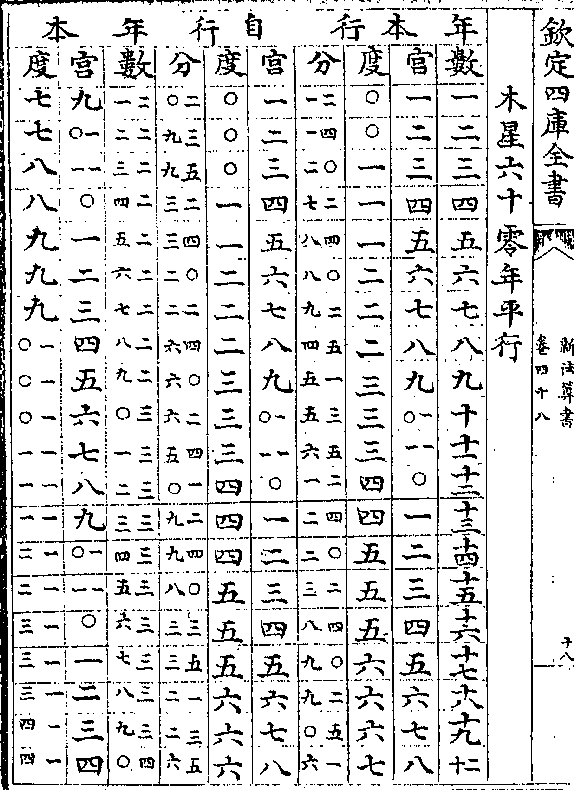 欽定四庫全書
新法算書
卷四十八
十八
木星六十零年平行
年本行自行年本
年數一二三四五六七八九十十一十二十三十四十五十六十七十八十九二十
宫一二三四五六七八九一〇一一〇一二三四五六七八
度〇〇一一一二二二三三三四四五五五六六六七
分二一四一〇二二七四八〇八二九五四一五三五五六二一四二〇二二三四八〇九二九五〇一六
宫一二三四五六七八九一〇一一〇一二三四五六七八
度〇〇〇一一二二二三三三四四四五五五六六六
分二〇三九五九二三四三〇二二二四六〇六二六四五一〇二九四九〇八三三五三一二三二五六
數二一二二二三二四二五二六二七二八二九三〇三一三二三三三四三五三六三七三八三九四〇
宫九一〇一一〇一二三四五六七八九一〇一一〇一二三四
度七七八八九九九一〇一〇一〇一一一一一一一二一二一三一三一三一四一四